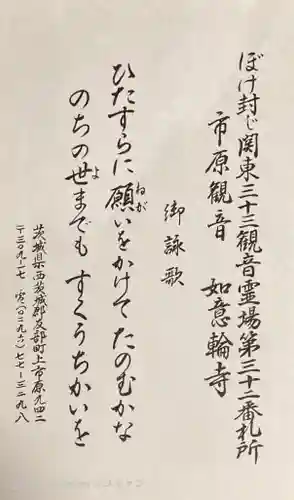 ぼけ封じ関東三十三観音霊場第三十二番札所
市原観音 如意輪寺
御詠歌
ひたすらに願いをかけてたのむかな
のちの世までもすくうちかいを
茨城県西茨城郡友部町上市原九四二
〒三〇九-一七 ☎(〇二九六)七七-三二九八